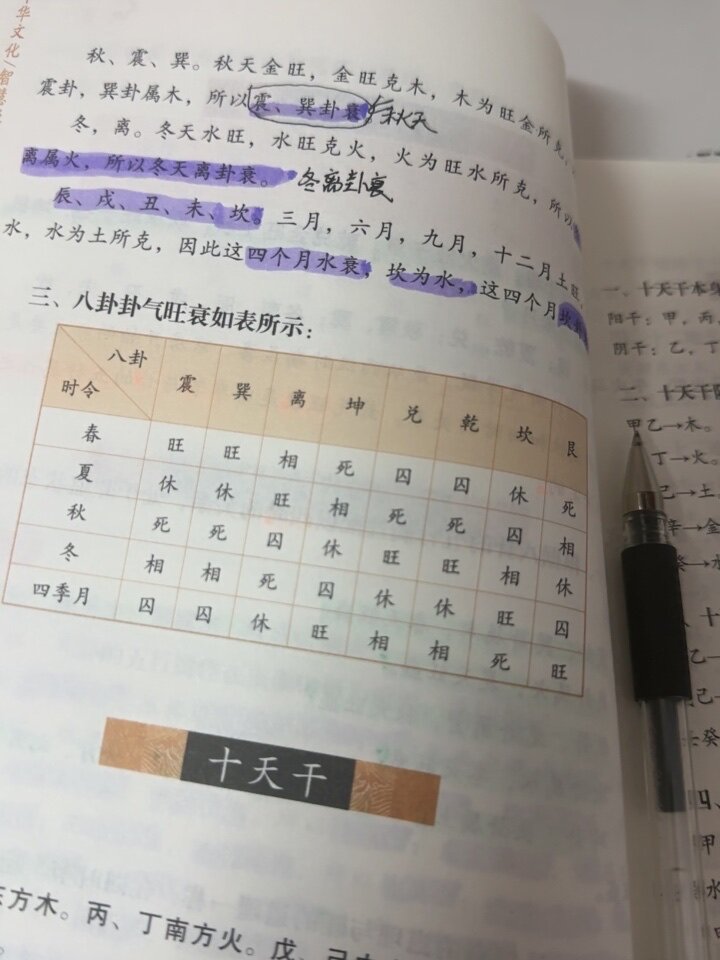 华文化/智慧
秋、震、巽。秋天金旺，金旺克木，木为旺金所克，
震卦，巽卦属木，所以震、巽卦衰 秋天
冬，离。冬天水旺，水旺克火，火为旺水所克，所以
离属火，所以冬天离卦衰。 冬离卦衰
辰、戌、丑、未、坎。三月，六月，九月，十二月土旺，
水，水为土所克，因此这四个月水衰，坎为水，这四个月坎卦
三、八卦卦气旺衰如表所示：
八卦 时令 震 巽 离 坤 兑 乾 坎 艮
春 旺 旺 相 死 囚 囚 休 死
夏 休 休 旺 相 死 死 囚 相
秋 死 死 囚 休 旺 旺 相 休
冬 相 相 死 囚 休 休 旺 囚
四季月 囚 囚 休 旺 相 相 死 旺
十天干
方木。丙、丁南方火。戊、己
一、十天干本
阳干：甲，丙，
阴干：乙，丁
二、十天干
甲乙→木。
丁→火。
己→土
辛→金
癸→水
十
乙→
己→
壬癸
四、
甲
水